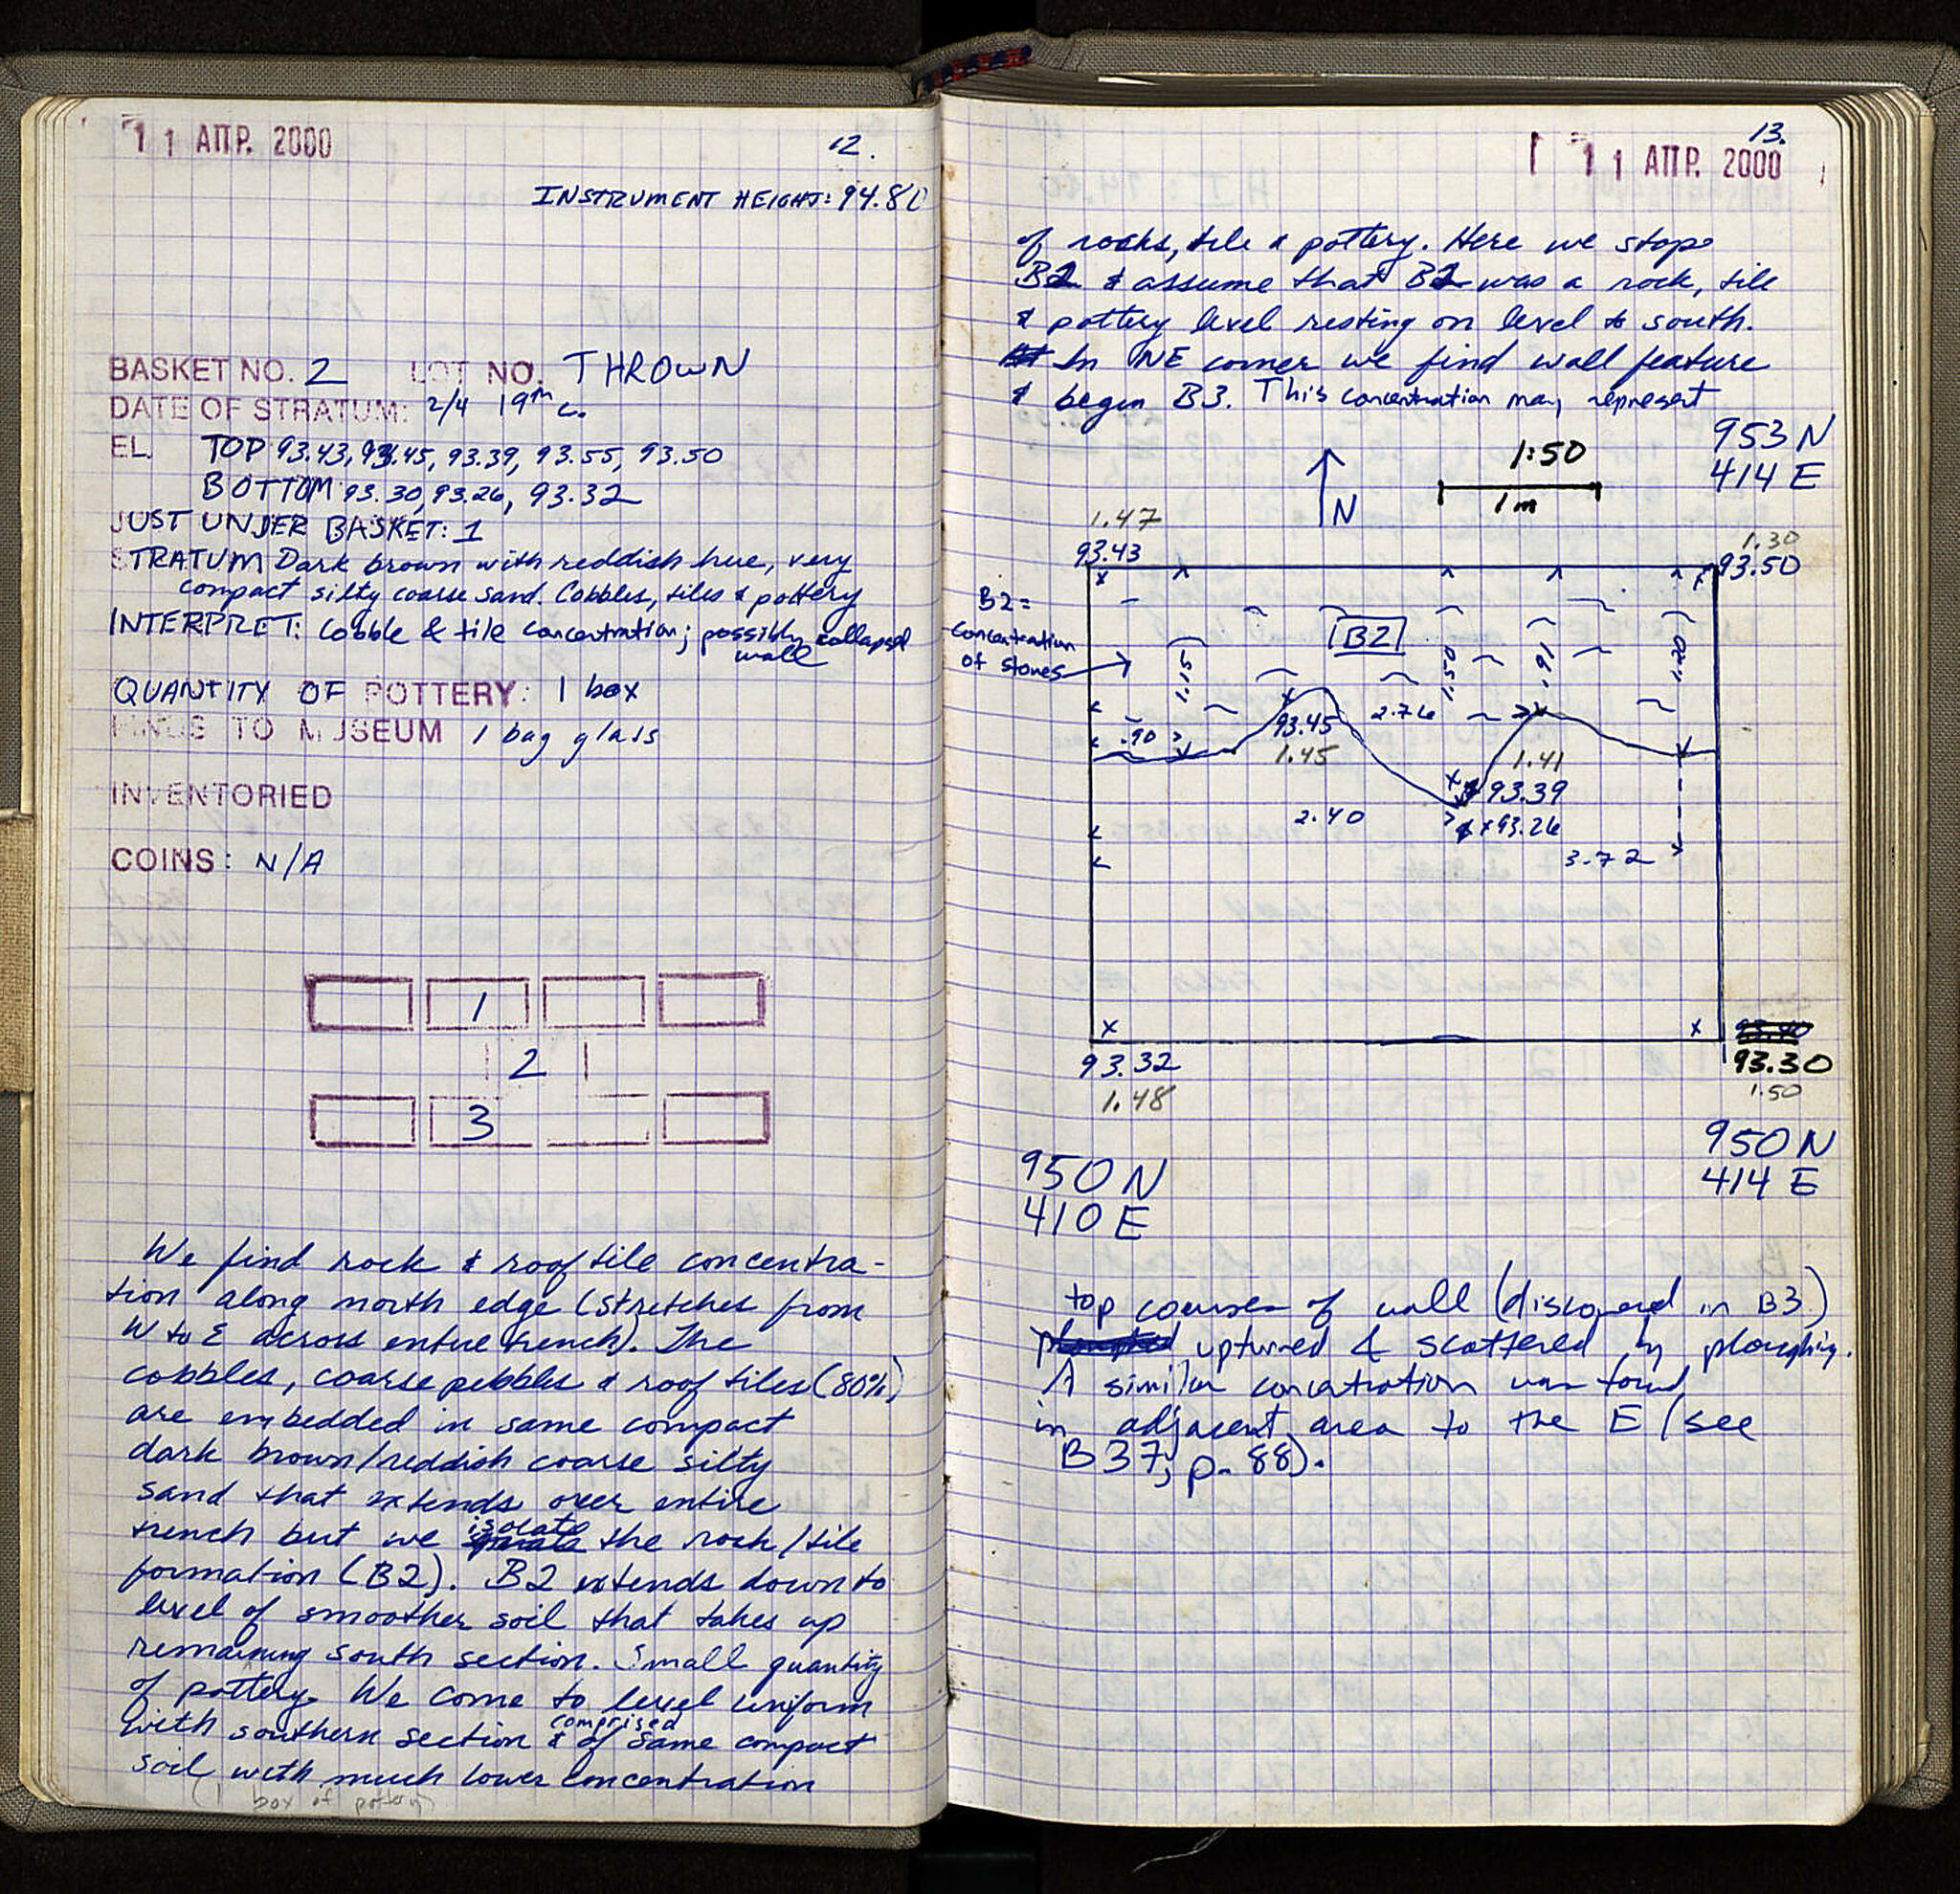 11 ΑΠΡ. 2000
12.
INSTRUMENT HEIGHT: 94.80
BASKET NO. 2 LOT NO. THROWN
DATE OF STRATUM: 2/4 19th c.
EL. TOP 93.43, 93.45, 93.39, 93.55, 93.50
BOTTOM 93.30, 93.26, 93.32
JUST UNDER BASKET: 1
STRATUM Dark brown with reddish hue, very
compact silty coarse sand. Cobbles, tiles & pottery
INTERPRET: Cobble & tile concentration; possibly collapsed
wall
QUANTITY OF POTTERY: 1 box
FINDS TO MUSEUM 1 bag glass
INVENTORIED
COINS: N/A
1
2
3
We find rock & roof tile concentra-
tion along north edge (stretches from
W to E across entire trench). The
cobbles, coarse pebbles & roof tiles (80%)
are embedded in same compact
dark brown/reddish coarse silty
sand that extends over entire
trench but we isolate the rock/tile
formation (B2). B2 extends down to
level of smoother soil that takes up
remaining south section. Small quantity
of pottery. We come to level uniform
with southern section & comprised of same compact
soil with much lower concentration
(1 box of pottery)
13.
11 ΑΠΡ. 2000
of rocks, tile & pottery. Here we stop
B2 & assume that B2 was a rock, tile
& pottery level resting on level to south.
In NE corner we find wall feature
& begin B3. This concentration may represent
953 N
414 E
1:50
1m
N
1.47
93.43
1.30
93.50
B2=
concentration
of stones
B2
1.15
1.50
1.91
1.20
.90
93.45
1.45
2.76
1.41
93.39
93.26
2.40
3.72
93.32
1.48
93.30
1.50
950 N
410 E
950 N
414 E
top courses of wall (discovered in B3)
upturned & scattered by ploughing.
A similar concentration was found
in adjacent area to the E (see
B37, p. 88).